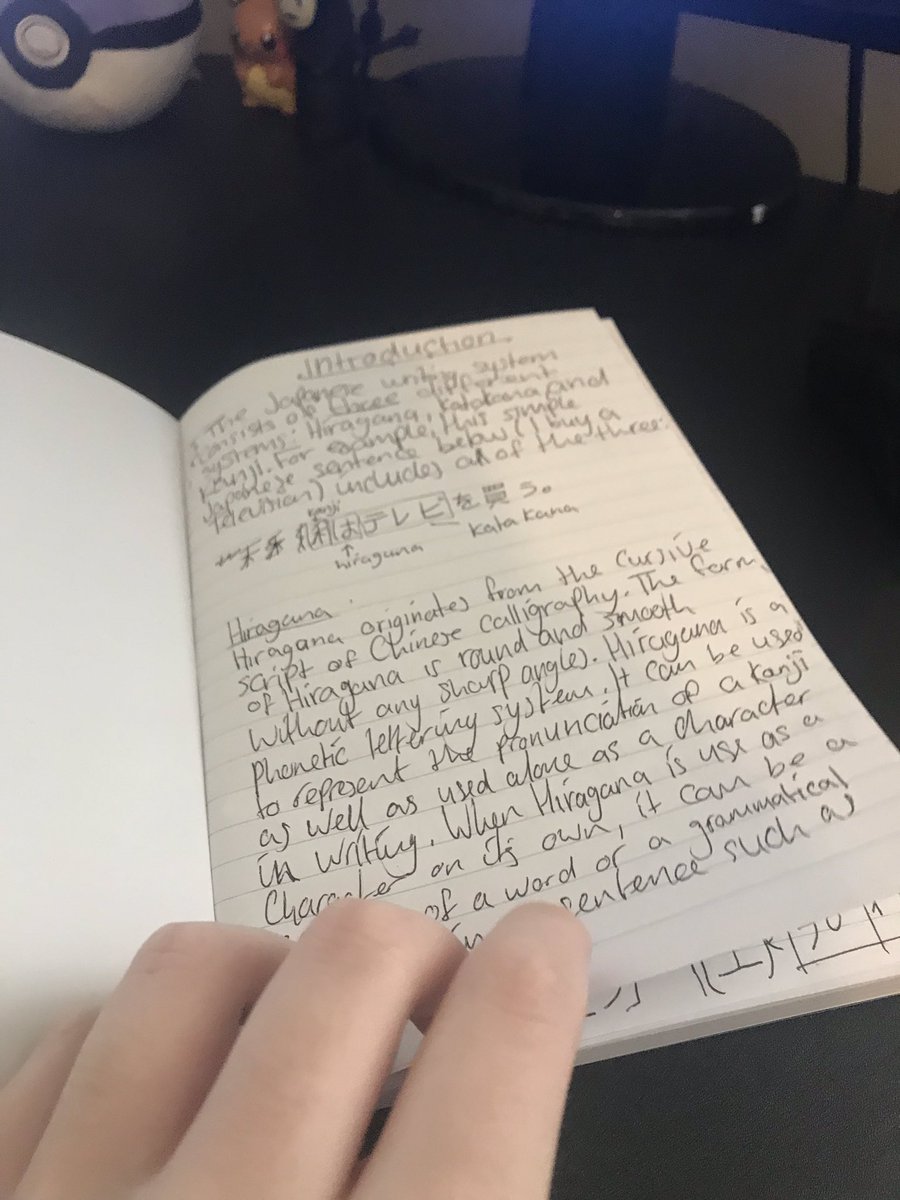 Introduction
The Japanese writing system
consists of three different
systems: Hiragana, Katakana and
Kanji. For example, this simple
Japanese sentence below (I buy a
television) includes all of the three.
私はテレビを買う。
kanji
hiragana
katakana
Hiragana
Hiragana originates from the cursive
script of Chinese calligraphy. The form
of Hiragana is round and smooth
without any sharp angles. Hiragana is a
phonetic lettering system. It can be used
to represent the pronunciation of a kanji
as well as used alone as a character
in writing. When Hiragana is use as a
character on its own, it can be a
of a word or a grammatical
in sentence such as